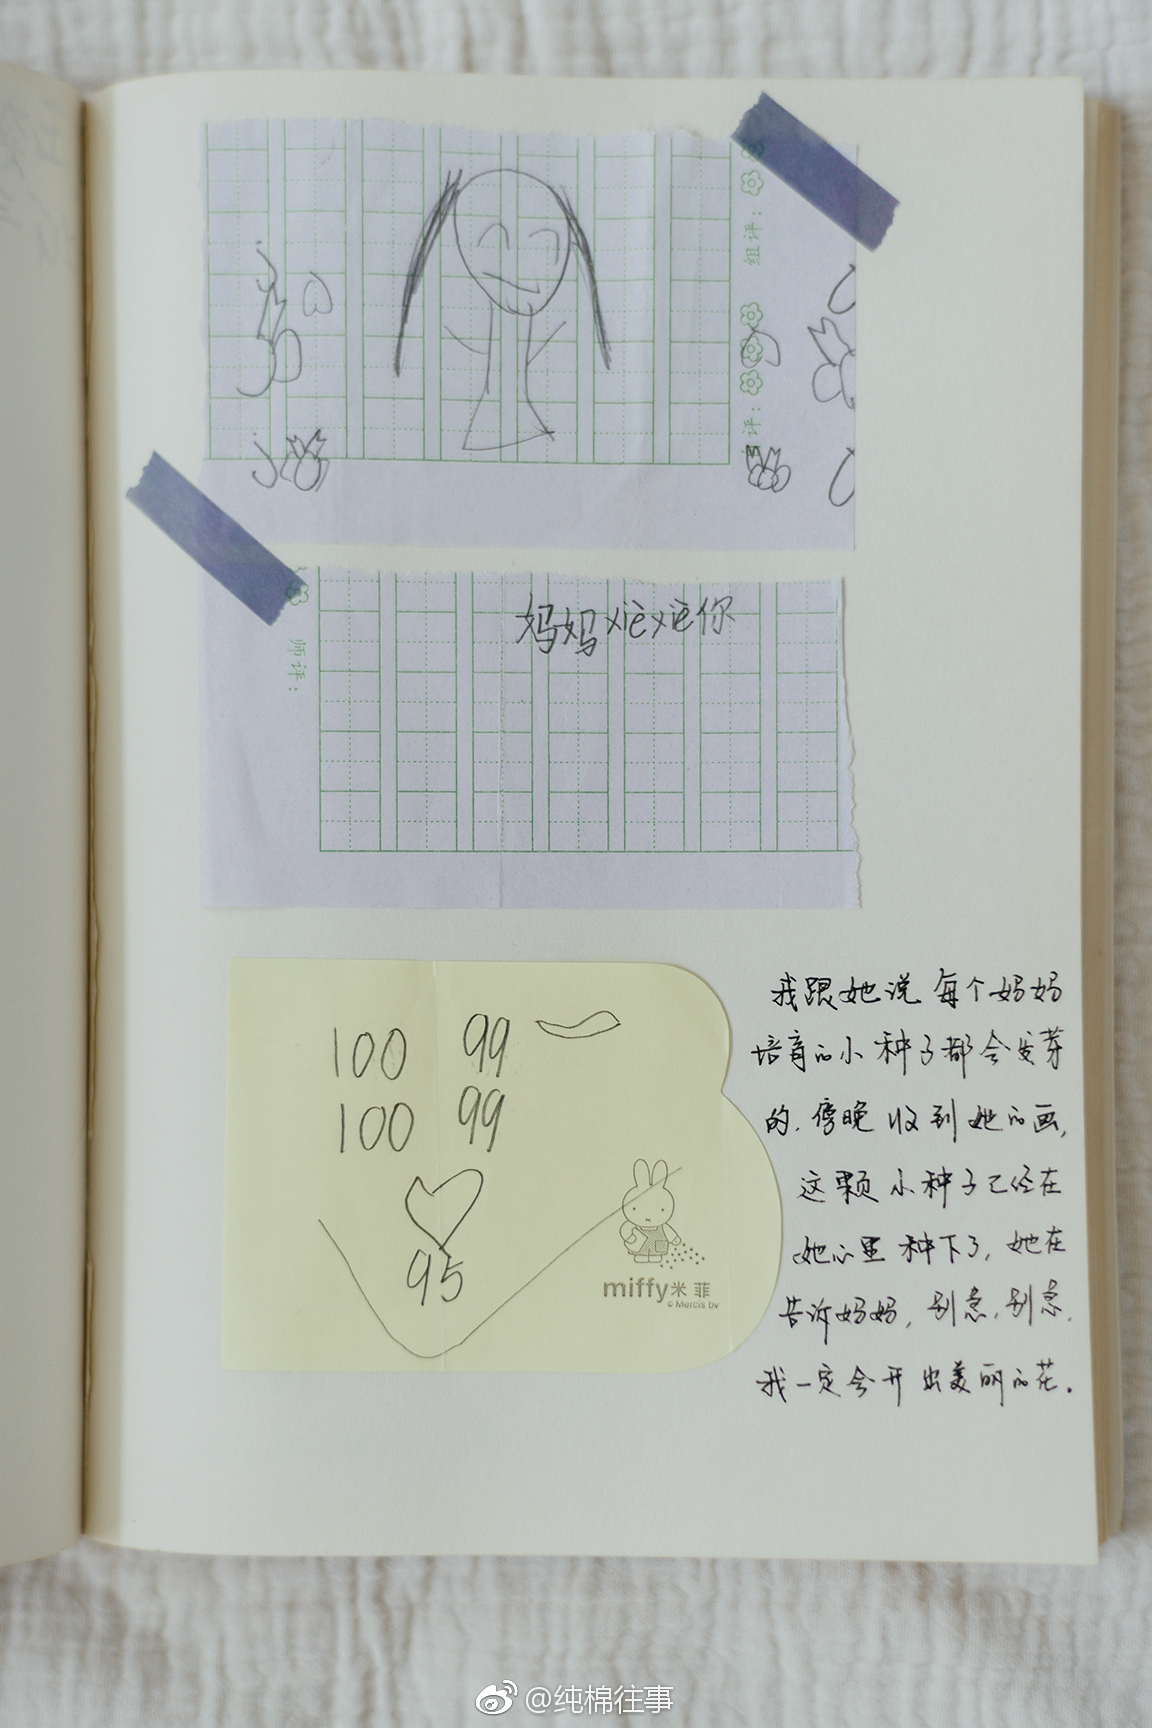 组评:
师评:
师评:
妈妈xièxiè你
100 99
100 99
95
miffy米菲
© Mercis bv
我跟她说 每个妈妈
培育的小种子都会发芽
的.傍晚收到她的画,
这颗小种子已经在
她心里种下了,她在
告诉妈妈,别急,别急.
我一定会开出美丽的花.
@纯棉往事